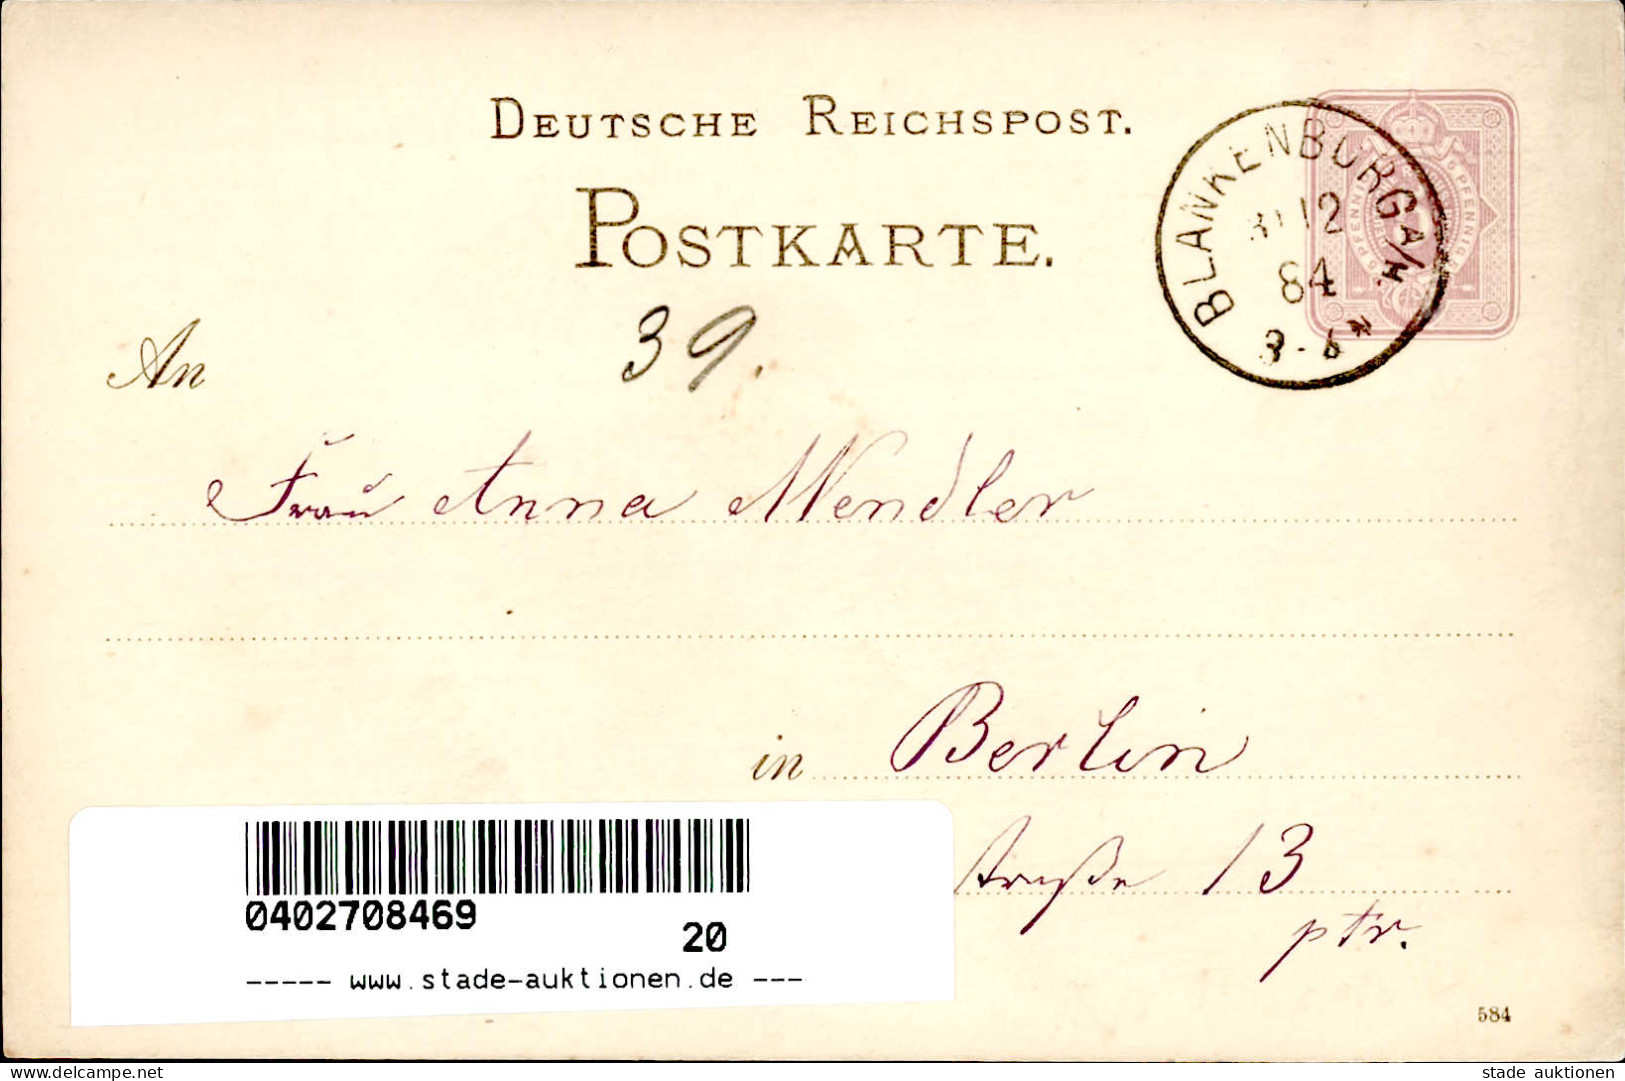 DEUTSCHE REICHSPOST.
POSTKARTE.
BLANKENBURG A/H.
12
84
5 PFENNIG
39.
An
Frau Anna Wendler
in Berlin
straße 13
ptr.
0402708469
20
----- www.stade-auktionen.de ---
584
delcampe.net
stade auktionen